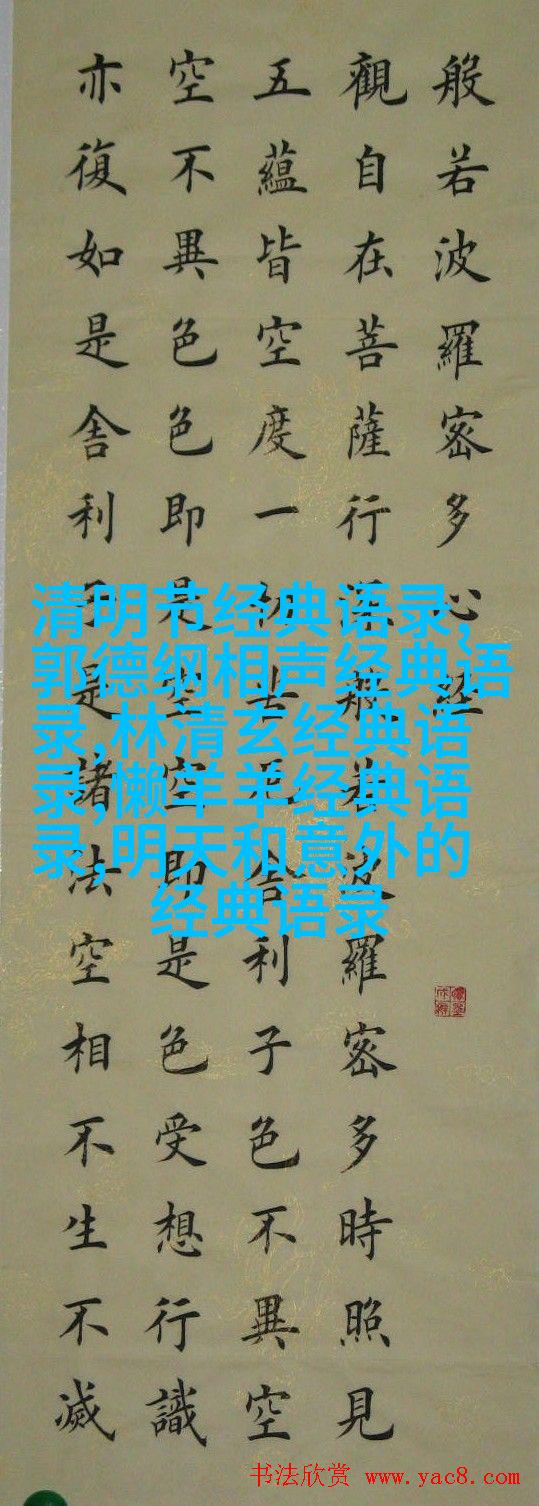 般若波羅密多心經
觀自在菩薩行深般若波羅密多時照見
五蘊皆空度一切苦厄舍利子色不異空
空不異色色即是空空即是色受想行識
亦復如是舍利子是諸法空相不生不滅
清明节经典语录,
郭德纲相声经典语
录,林清玄经典语
录,懒羊羊经典语
录,明天和意外的
经典语录
书法欣赏 www.yac8.com